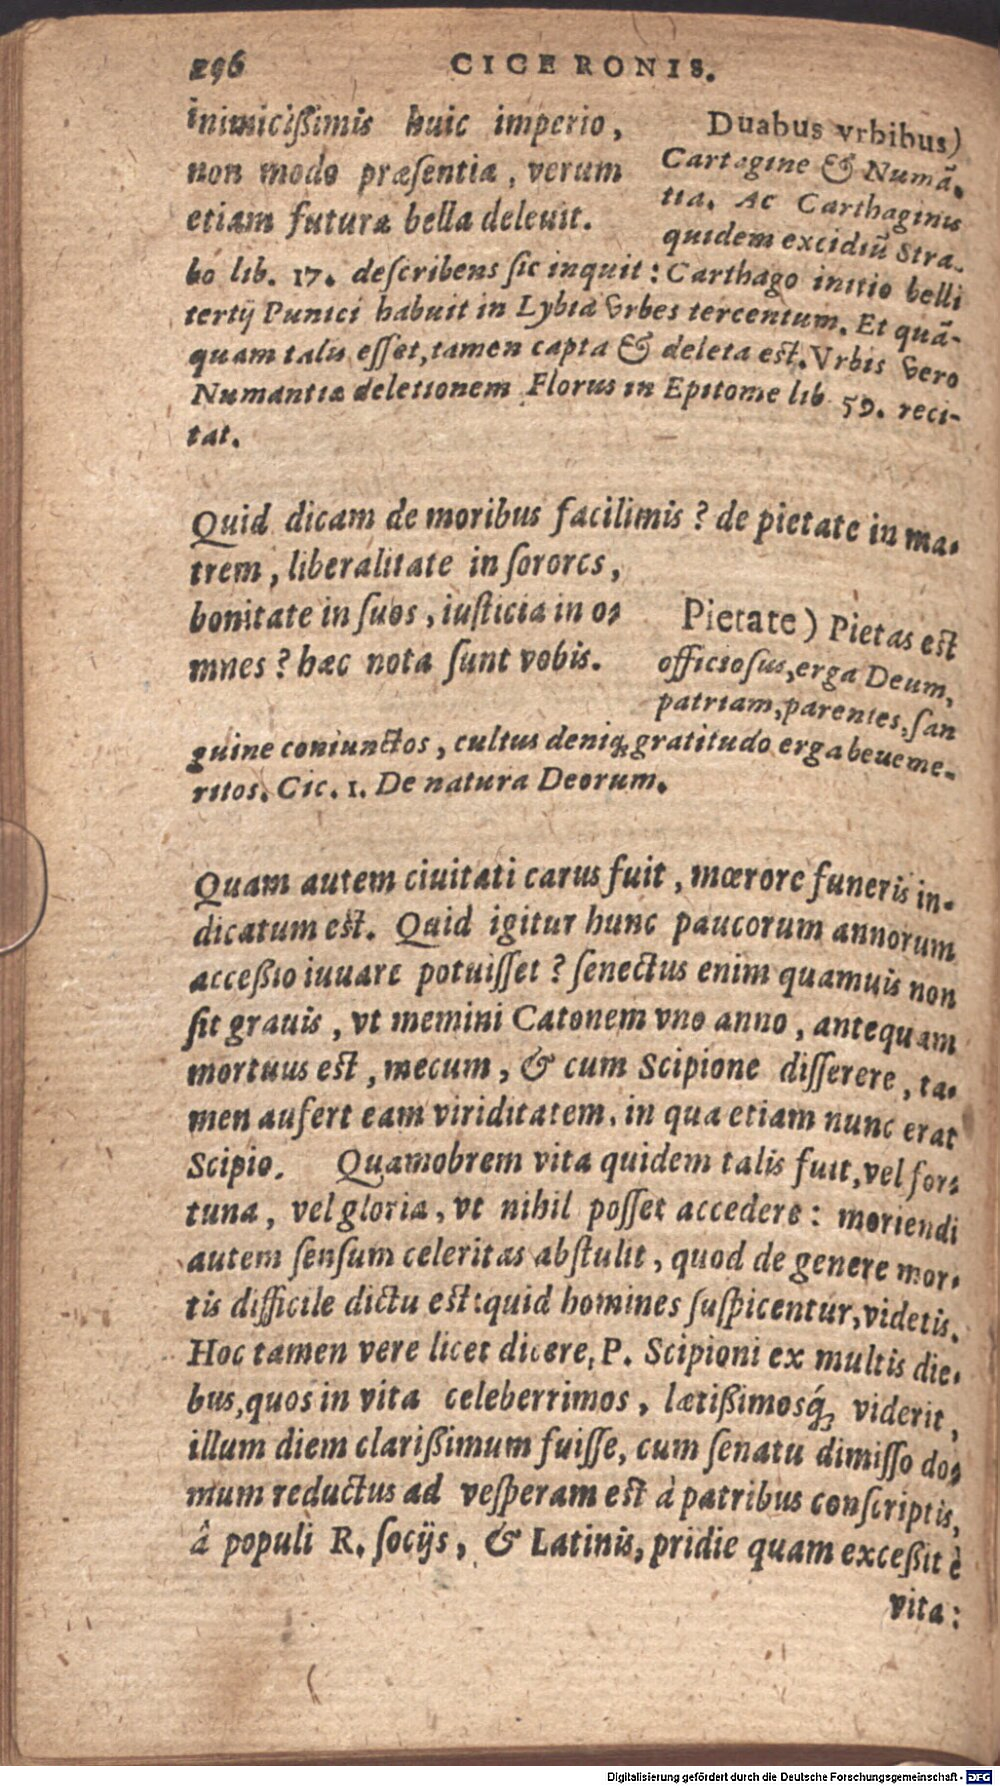 296 CICERONIS.
inimicißimis huic imperio,
non modo præſentia, verum
etiam futura bella deleuit.
Duabus vrbibus)
Cartagine & Numā.
tia. Ac Carthaginis
quidem excidiū Stra.
bo lib. 17. deſcribens ſic inquit: Carthago initio belli
tertij Punici habuit in Lybia vrbes tercentum. Et quā-
quam talis eſſet, tamen capta & deleta eſt. Vrbis vero
Numantiæ deletionem Florus in Epitome lib 59. reci-
tat.
Quid dicam de moribus facilimis? de pietate in ma-
trem, liberalitate in ſorores,
bonitate in ſuos, iuſticia in o-
mnes? hæc nota ſunt vobis.
Pietate) Pietas eſt
officioſus, erga Deum,
patriam, parentes, ſan
guine coniunctos, cultus deniq; gratitudo erga beueme-
ritos. Cic. 1. De natura Deorum.
Quam autem ciuitati carus fuit, mœrore funeris in-
dicatum eſt. Quid igitur hunc paucorum annorum
acceßio iuuare potuiſſet? ſenectus enim quamuis non
ſit grauis, vt memini Catonem vno anno, antequam
mortuus eſt, mecum, & cum Scipione diſſerere, ta-
men aufert eam viriditatem, in qua etiam nunc erat
Scipio. Quamobrem vita quidem talis fuit, vel for-
tuna, vel gloria, vt nihil poſſet accedere: moriendi
autem ſenſum celeritas abſtulit, quod de genere mor-
tis difficile dictu eſt: quid homines ſuſpicentur, videtis.
Hoc tamen vere licet dicere, P. Scipioni ex multis die-
bus, quos in vita celeberrimos, lætißimosq́; viderit,
illum diem clarißimum fuiſſe, cum ſenatu dimiſſo do-
mum reductus ad veſperam eſt à patribus conſcriptis,
â populi R. ſocijs, & Latinis, pridie quam exceßit è
vita:
Digitalisierung gefördert durch die Deutsche Forschungsgemeinschaft - DFG